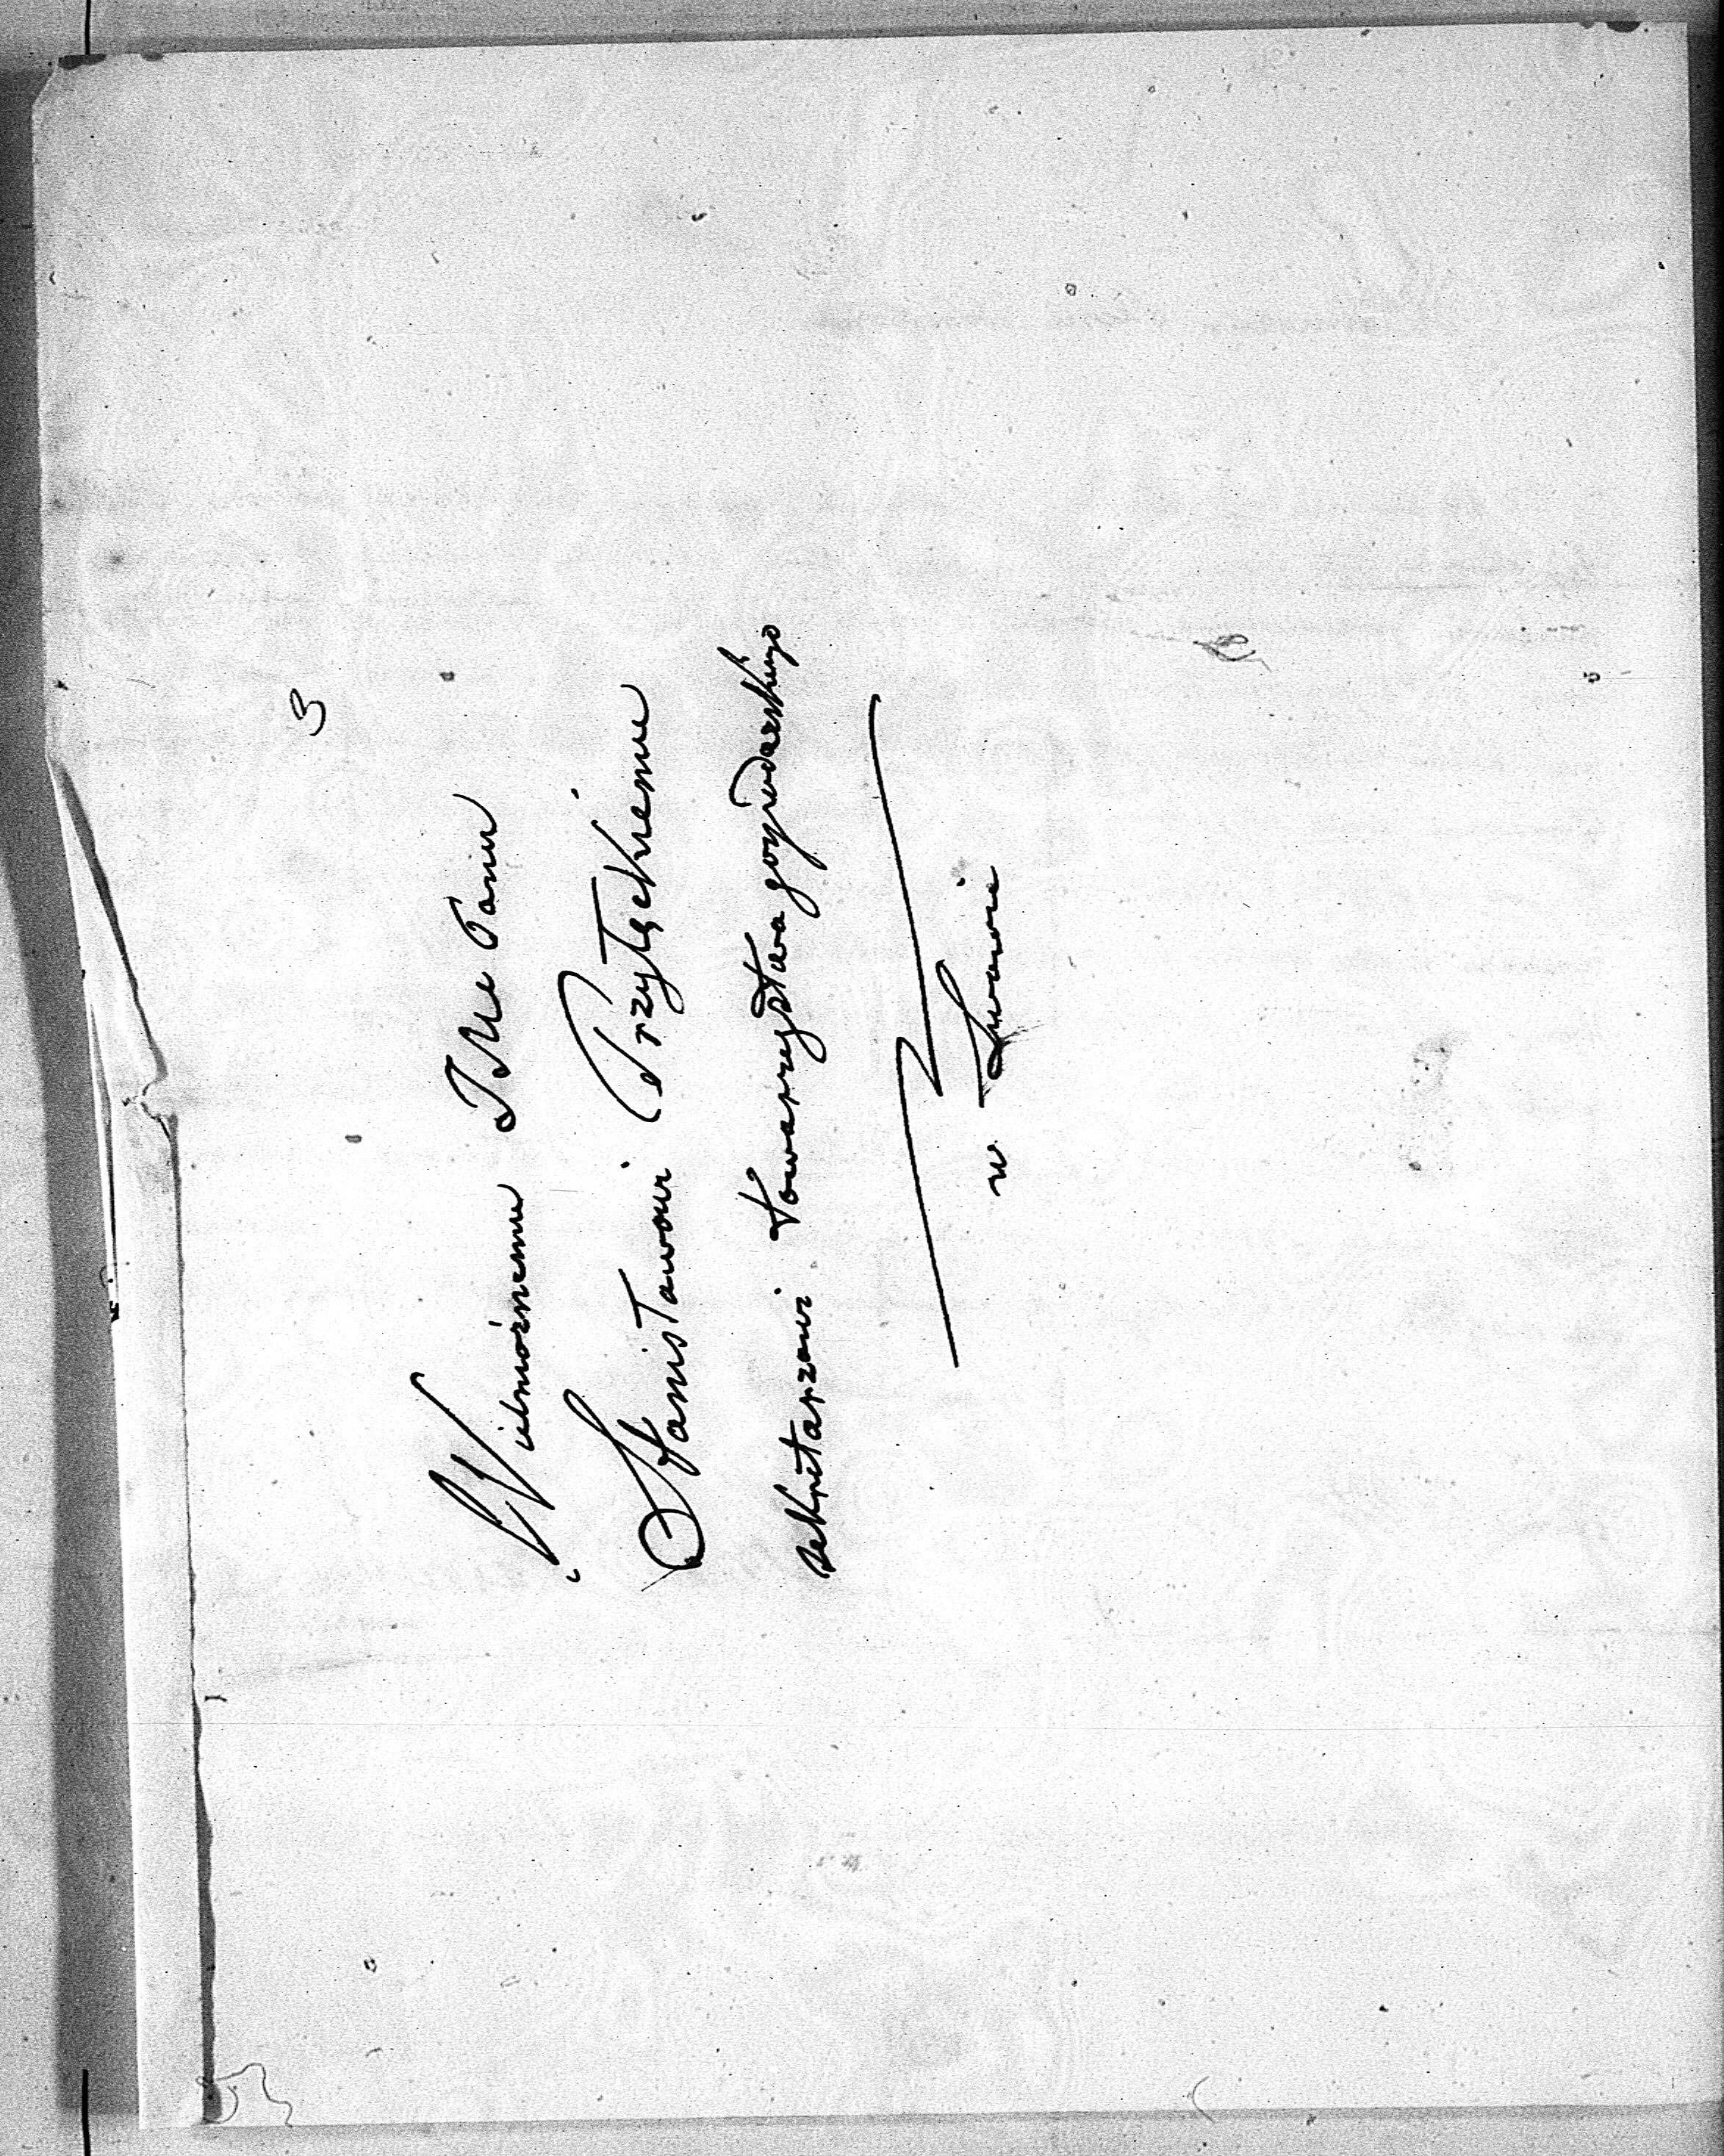 3
Wielmożnemu JMci Panu
Stanisławowi Przyłęckiemu
sekretarzowi towarzystwa gospodarskiego
w Lwowie